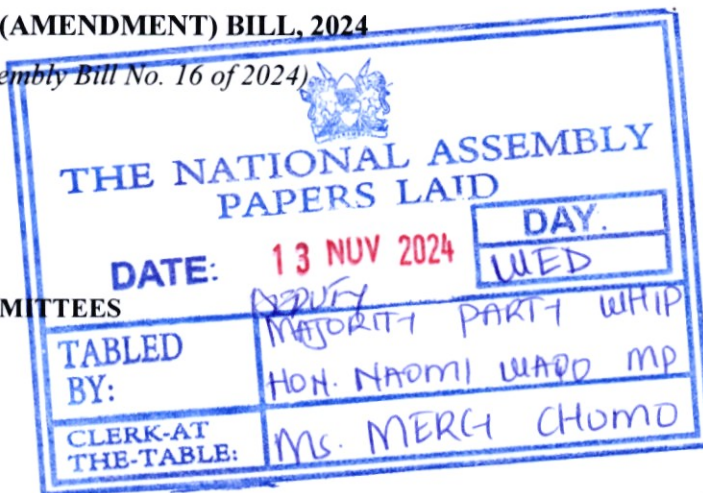 (AMENDMENT) BILL, 2024
embly Bill No. 16 of 2024)
THE NATIONAL ASSEMBLY
PAPERS LAID
DATE: 13 NOV 2024
DAY.
WED
MITTEES
TABLED
BY:
DEPUTY
MAJORITY PARTY WHIP
HON. NAOMI WAQO MP
CLERK-AT
THE-TABLE:
Ms. MERCY CHOMO